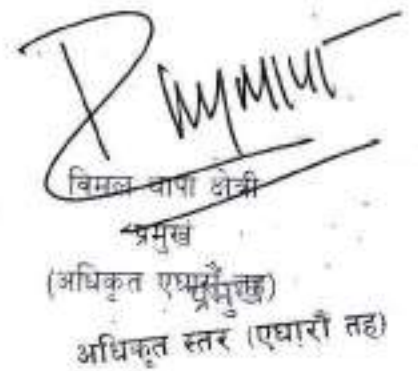 विमल थापा क्षेत्री
प्रमुख
(अधिकृत एघारौं तह)
प्रमुख
अधिकृत स्तर (एघारौं तह)